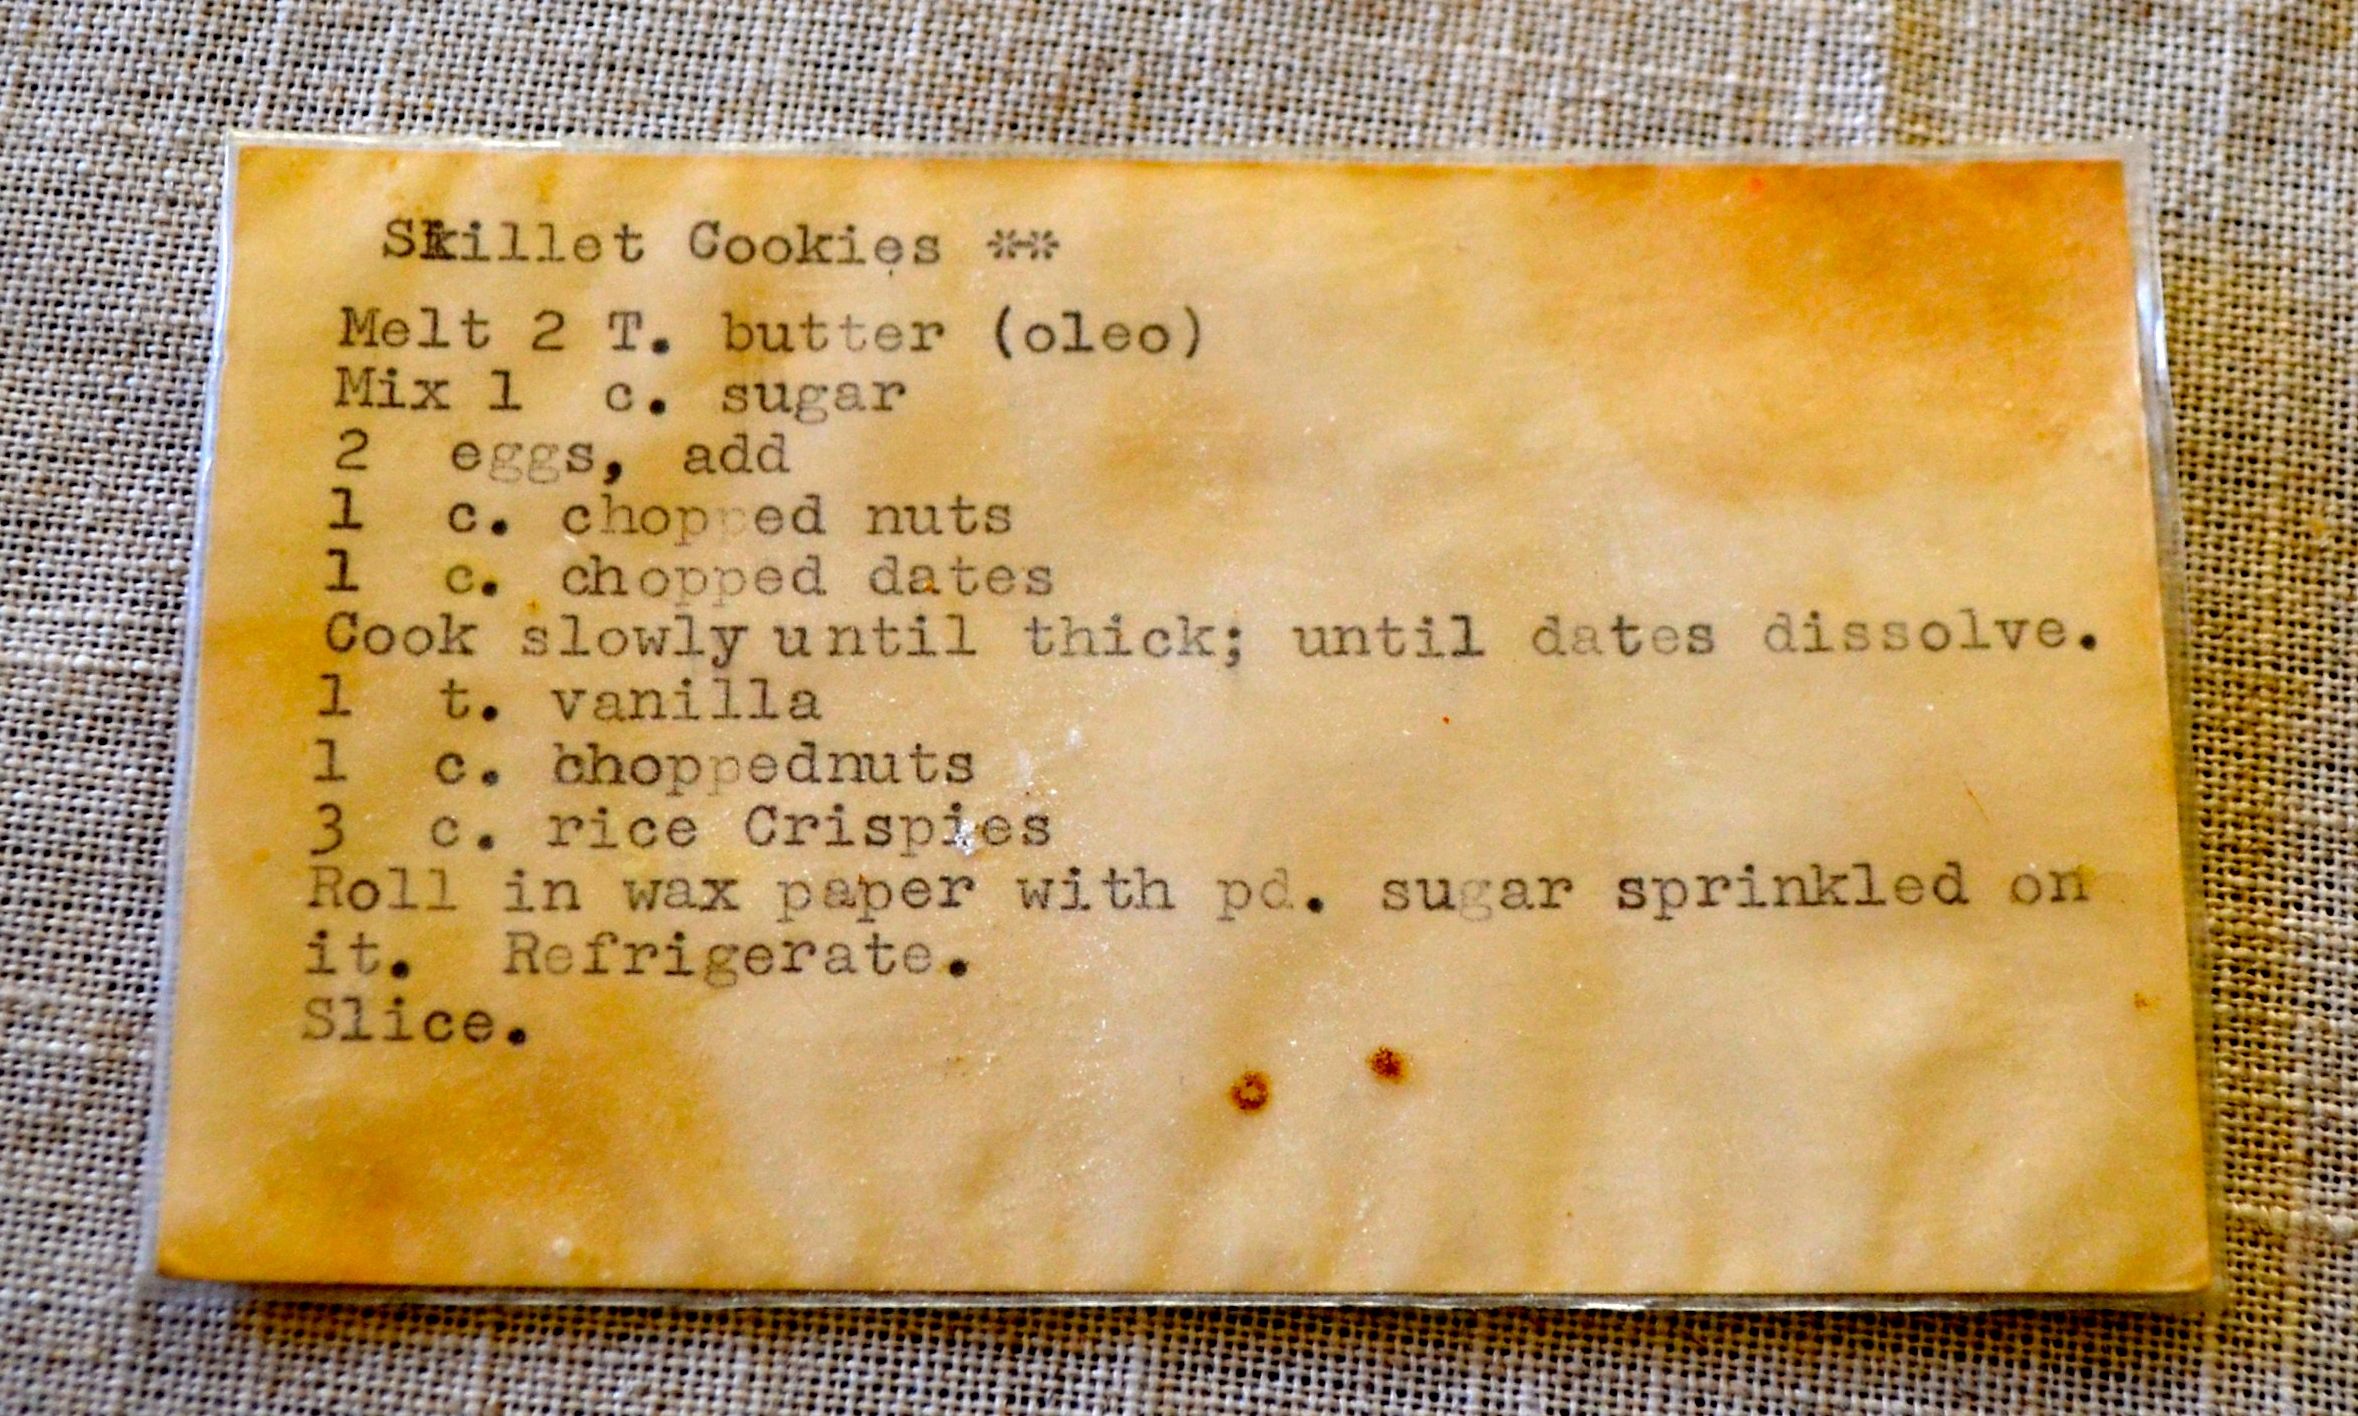 Skillet Cookies **
Melt 2 T. butter (oleo)
Mix 1 c. sugar
2 eggs, add
1 c. chopped nuts
1 c. chopped dates
Cook slowly until thick; until dates dissolve.
1 t. vanilla
1 c. choppednuts
3 c. rice Crispies
Roll in wax paper with pd. sugar sprinkled on
it. Refrigerate.
Slice.